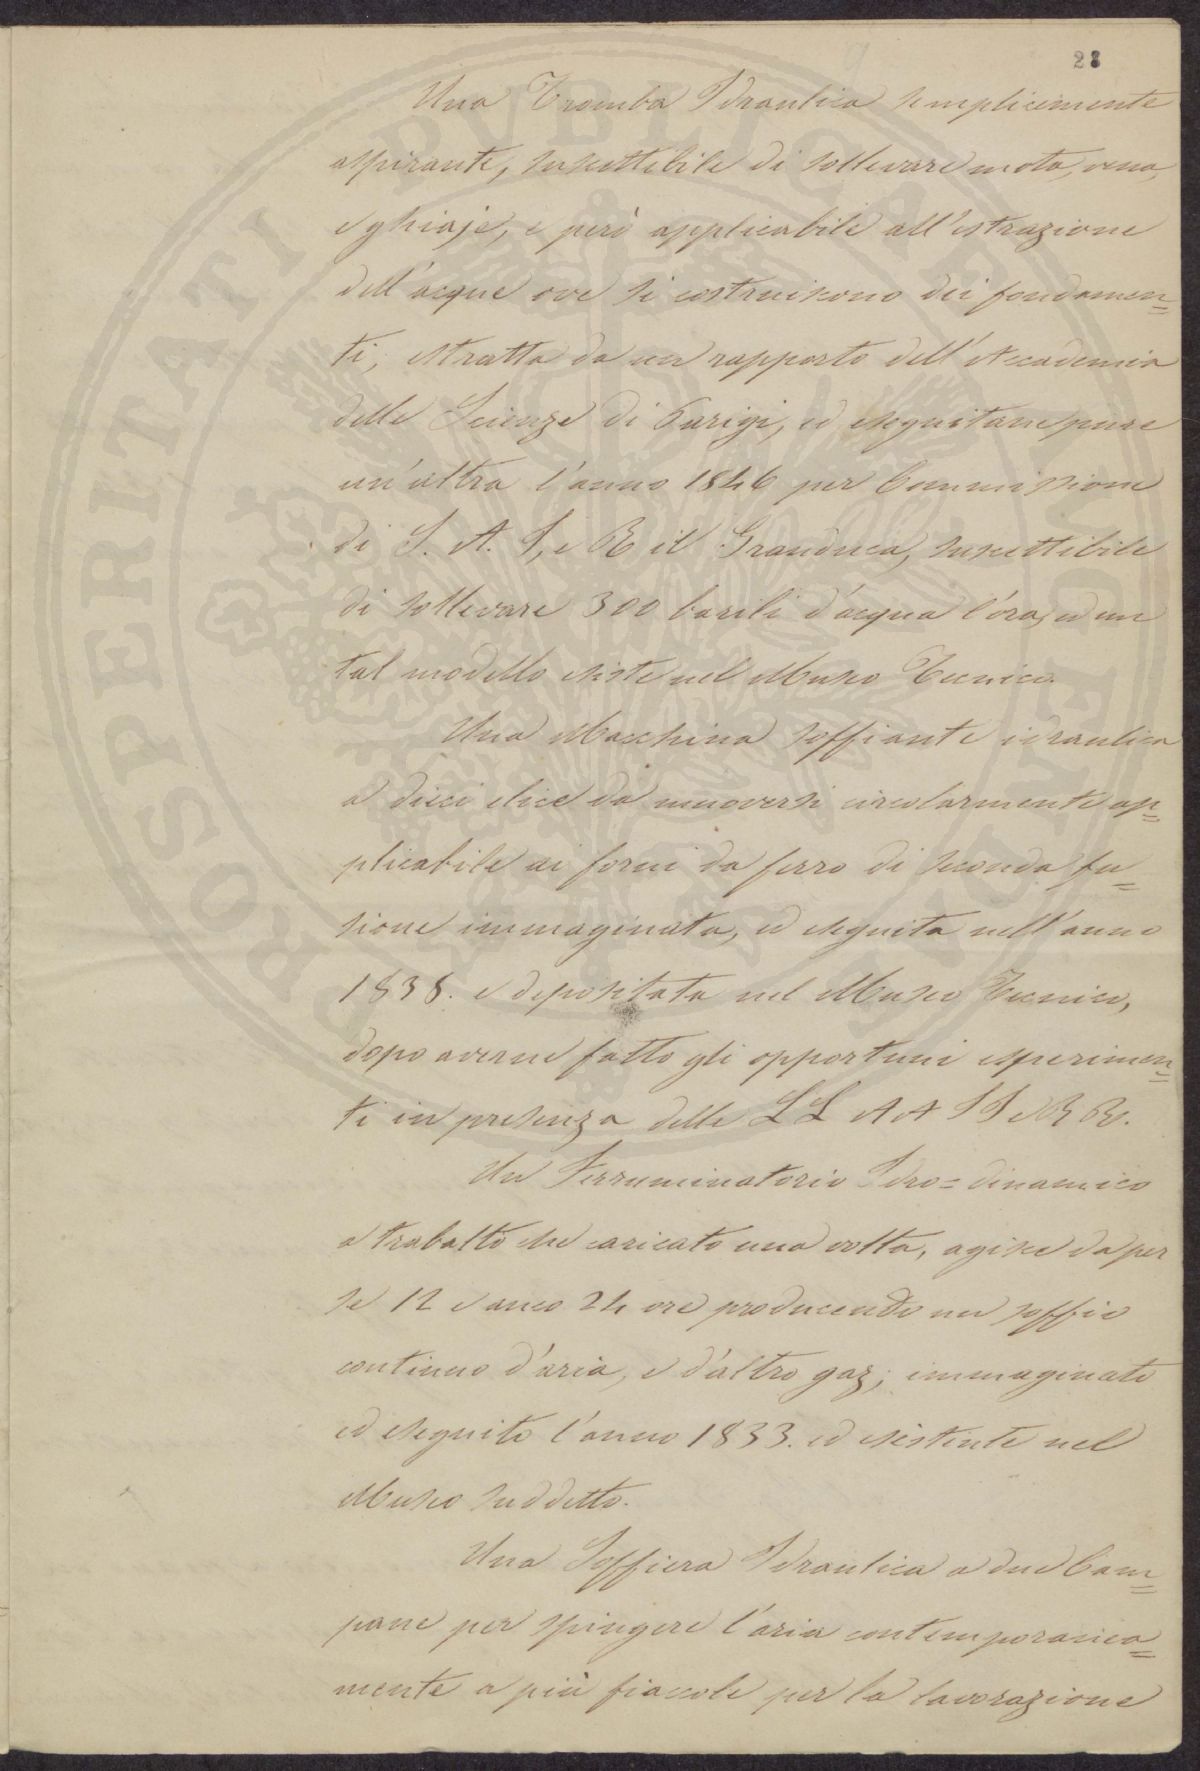 28
Una Tromba Idraulica semplicemente
aspirante, suscettibile di sollevare mota, rena,
e ghiaje, e però applicabile all'estrazione
dell'acque ove si costruiscono dei fondamen=
ti, estratta da un rapporto dell'Accademia
delle Scienze di Parigi, ed eseguitane pure
un'altra l'anno 1846 per Commissione
di S. A. I, e R il Granduca, suscettibile
di sollevare 300 barili d'acqua l'ora, ed un
tal modello esiste nel Museo Tecnico.
Una Macchina soffiante idraulica
a dieci elice da muoversi circolarmente ap=
plicabile ai forni da ferro di seconda fu=
sione immaginata, ed eseguita nell'anno
1838. e depositata nel Museo Tecnico,
dopo averne fatto gli opportuni esperimen=
ti in presenza delle LL AA II e RR.
Un Ferruminatorio Idro=dinamico
a trabalto che caricato una volta, agisce da per
se 12 e anco 24 ore producendo un soffio
continuo d'aria, e d'altro gaz; immaginato
ed eseguito l'anno 1833. ed esistente nel
Museo suddetto.
Una Soffiera Idraulica a due Cam=
pane per spingere l'aria contemporanea=
mente a più fiaccole per la lavorazione
PROSPERITATI PVBLICAE AVGENDAE